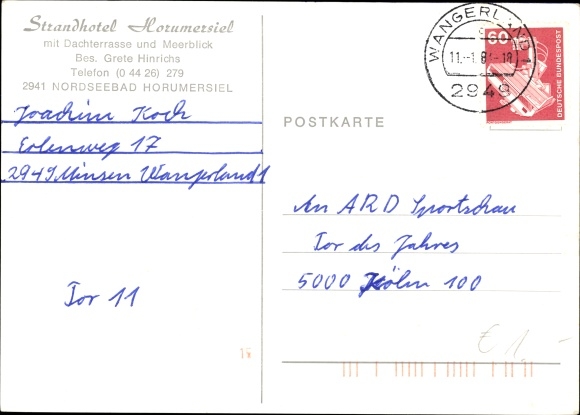 Strandhotel Horumersiel
mit Dachterrasse und Meerblick
Bes. Grete Hinrichs
Telefon (0 44 26) 279
2941 NORDSEEBAD HORUMERSIEL
Joachim Koch
Erlenweg 17
2949 Minsen Wangerland 1
Tor 11
WANGERLAND 1
11.-1.8
2949
60
DEUTSCHE BUNDESPOST
POSTKARTE
An ARD Sportschau
Tor des Jahres
5000 Köln 100
€ 1,-